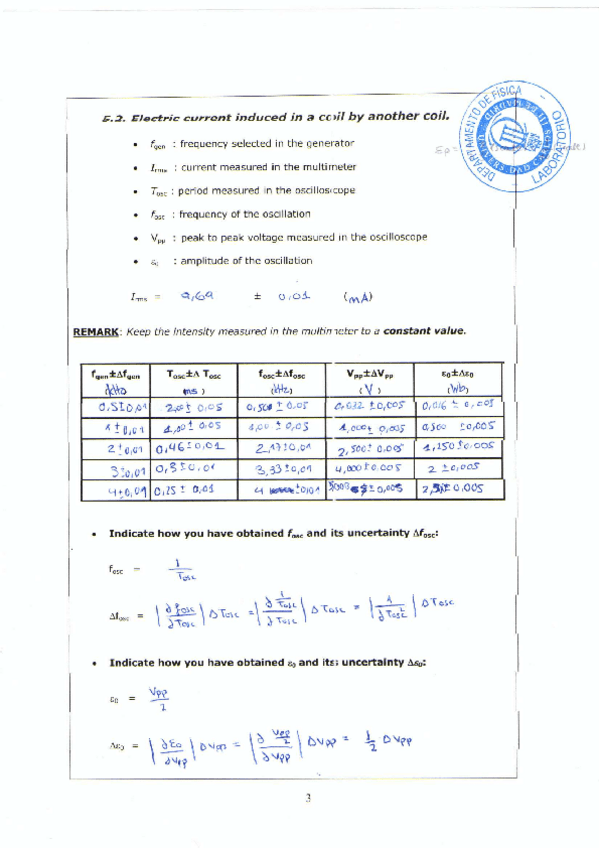 5.2. Electric current induced in a coil by another coil.
DEPARTAMENTO DE FÍSICA
LABORATORIO
• fgen : frequency selected in the generator
• Irms : current measured in the multimeter
• Tosc : period measured in the oscilloscope
• fosc : frequency of the oscillation
• Vpp : peak to peak voltage measured in the oscilloscope
• ε₀ : amplitude of the oscillation
Irms = 9,69 ± 0,01 (mA)
REMARK: Keep the intensity measured in the multimeter to a constant value.
fgen±Δfgen Tosc±Δ Tosc fosc±Δfosc Vpp±ΔVpp ε₀±Δε₀
(ms) (kHz) (V) (Wb)
0,5±0,01 2,00 ± 0,05 0,500 ± 0,05 0,032 ±0,005 0,016 ± 0,005
1 ± 0,01 1,00 ± 0,05 1,00 ± 0,05 1,000± 0,005 0,500 ±0,005
2 ± 0,01 0,46 ± 0,01 2,17±0,01 2,500± 0.005 1,250±0.005
3±0,01 0,3 ± 0,01 3,33±0,01 4,000±0.005 2 ±0,005
4±0,01 0,25 ± 0,01 4 ±0,01 ±0,005 ±0.005
• Indicate how you have obtained fosc and its uncertainty Δfosc:
fosc = 1/Tosc
Δfosc = |∂fosc/∂Tosc| ΔTosc = |∂ 1/Tosc / ∂Tosc| ΔTosc = |1/∂Tosc²| ΔTosc
• Indicate how you have obtained ε₀ and its uncertainty Δε₀:
ε₀ = Vpp/2
Δε₀ = |∂ε₀/∂Vpp| ΔVpp = |∂ Vpp/2 / ∂Vpp| ΔVpp = 1/2 ΔVpp
3